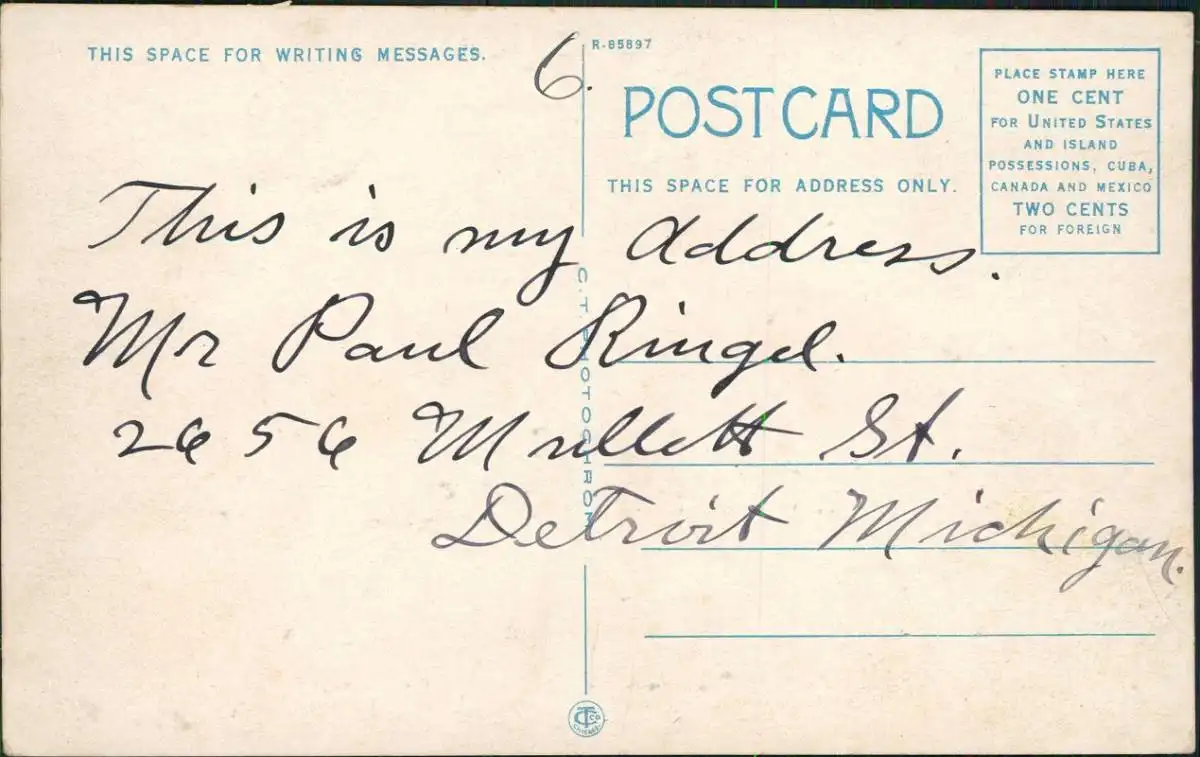 THIS SPACE FOR WRITING MESSAGES.
6.
R-85897
POSTCARD
THIS SPACE FOR ADDRESS ONLY.
PLACE STAMP HERE
ONE CENT
FOR UNITED STATES
AND ISLAND
POSSESSIONS, CUBA,
CANADA AND MEXICO
TWO CENTS
FOR FOREIGN
This is my address.
Mr Paul Ringel.
2656 Mullett St.
Detroit Michigan.
C.T. PHOTOCHROM
CT CO
CHICAGO